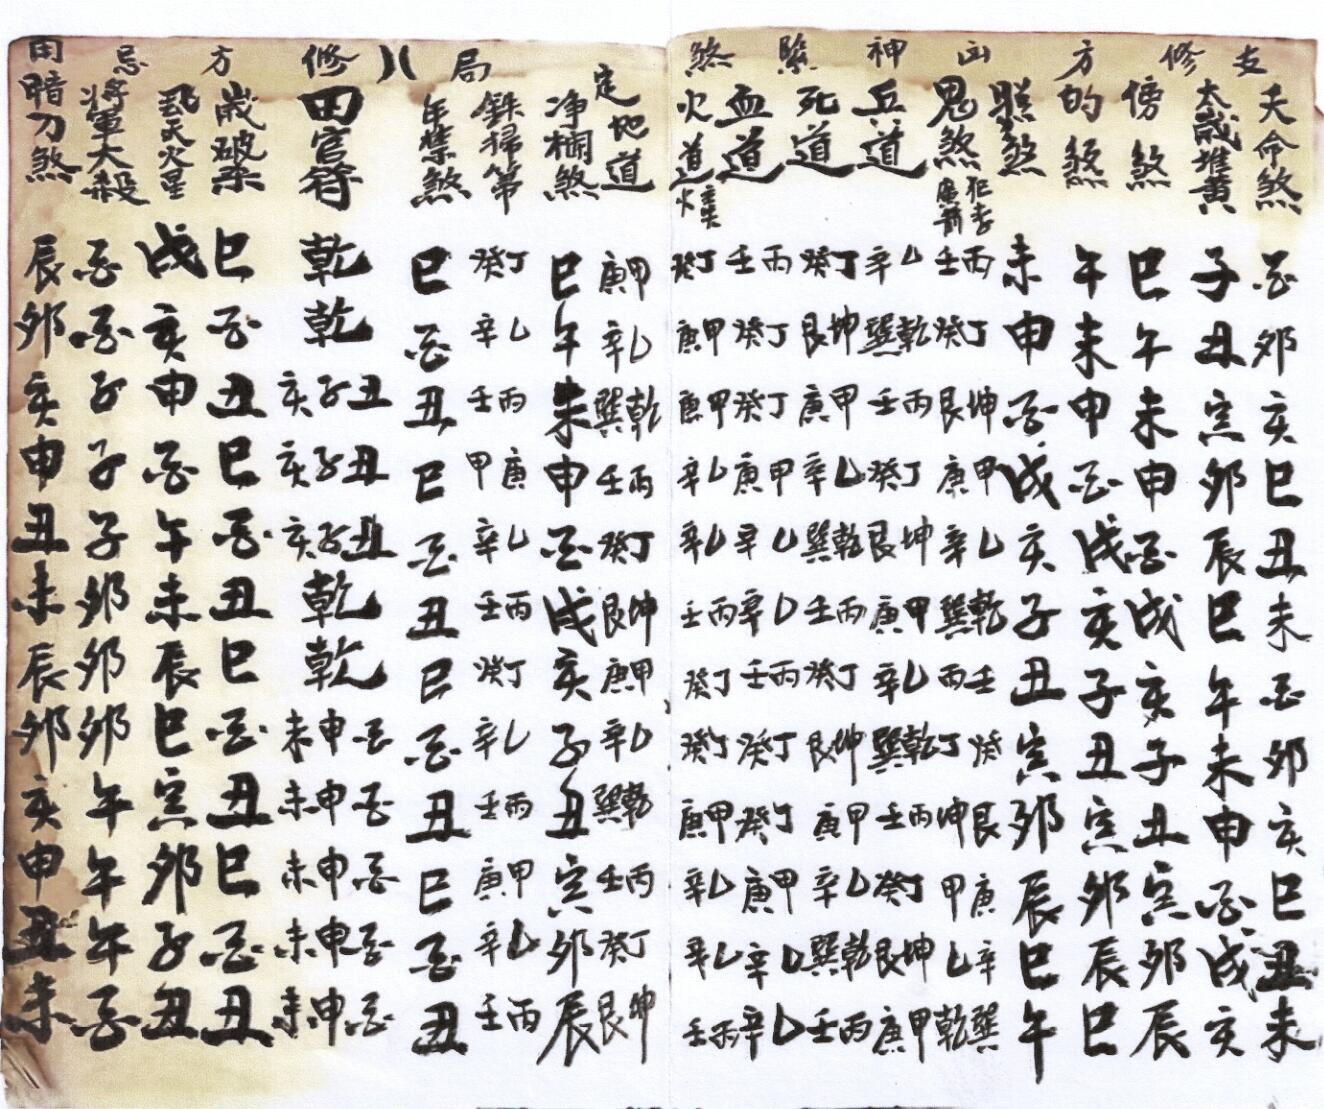 支修方凶神緊煞
天命煞 酉卯亥巳丑未酉卯亥巳丑未
太歲堆黄 子丑寅卯辰巳午未申酉戌亥
傍煞 巳午未申酉戌亥子丑寅卯辰
的煞 午未申酉戌亥子丑寅卯辰巳
照煞 未申酉戌亥子丑寅卯辰巳午
鬼煞 犯孝 丙壬 丁癸 坤艮 甲庚 乙辛 乾巽 壬丙 癸丁 艮坤 庚甲 辛乙 巽乾
兵道 乙辛 乾巽 丙壬 丁癸 坤艮 甲庚 乙辛 乾巽 丙壬 丁癸 坤艮 甲庚
死道 丁癸 坤艮 甲庚 乙辛 乾巽 丙壬 丁癸 坤艮 甲庚 乙辛 乾巽 丙壬
血道 丙壬 丁癸 丁癸 甲庚 乙辛 乙辛 丙壬 丁癸 丁癸 甲庚 乙辛 乙辛
火道 丁癸 甲庚 甲庚 乙辛 乙辛 丙壬 丁癸 丁癸 甲庚 乙辛 乙辛 丙壬
局
定地道 甲庚 乙辛 乾巽 丙壬 丁癸 坤艮 甲庚 乙辛 乾巽 丙壬 丁癸 坤艮
净欄煞 巳午未申酉戌亥子丑寅卯辰
鉄掃箒 丁癸 乙辛 丙壬 庚甲 乙辛 丙壬 丁癸 乙辛 丙壬 甲庚 乙辛 丙壬
年禁煞 巳酉丑巳酉丑巳酉丑巳酉丑
修方忌
田官符 乾 乾 丑子亥 丑子亥 丑子亥 乾 乾 酉申未 酉申未 酉申未 酉申未 酉申未
歲破 巳酉丑巳酉丑巳酉丑巳酉丑
飛天火星 戌亥申酉午未辰巳寅卯子丑
將軍大殺 酉酉子子子卯卯卯午午午酉
田暗刀煞 辰卯亥申丑未辰卯亥申丑未